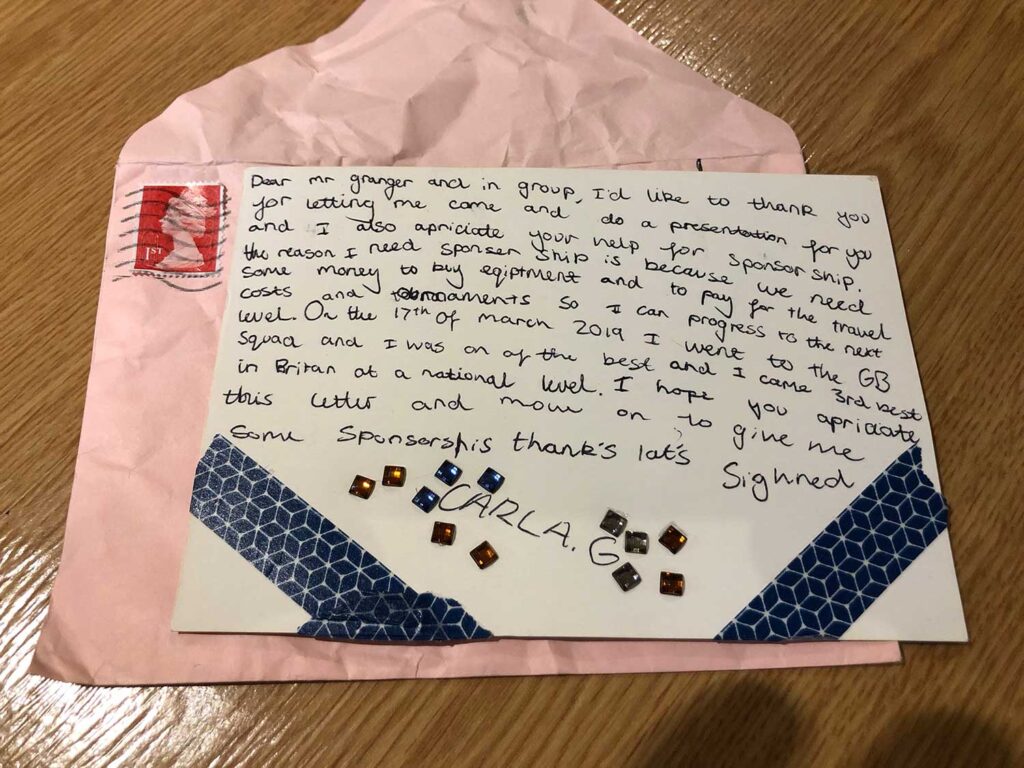 1ST
Dear mr granger and in group, I'd like to thank you
for letting me come and do a presentation for you
and I also apriciate your help for sponsor ship.
the reason I need sponser ship is because we need
some money to buy eqiptment and to pay for the travel
costs and so I can progress to the next
level. On the 17th of march 2019 I went to the GB
squad and I was on of the best and I came 3rd best
in Britan at a national level. I hope you apriciate
this letter and move on to give me
some sponsorshis thank's lat's Sighned
CARLA.G